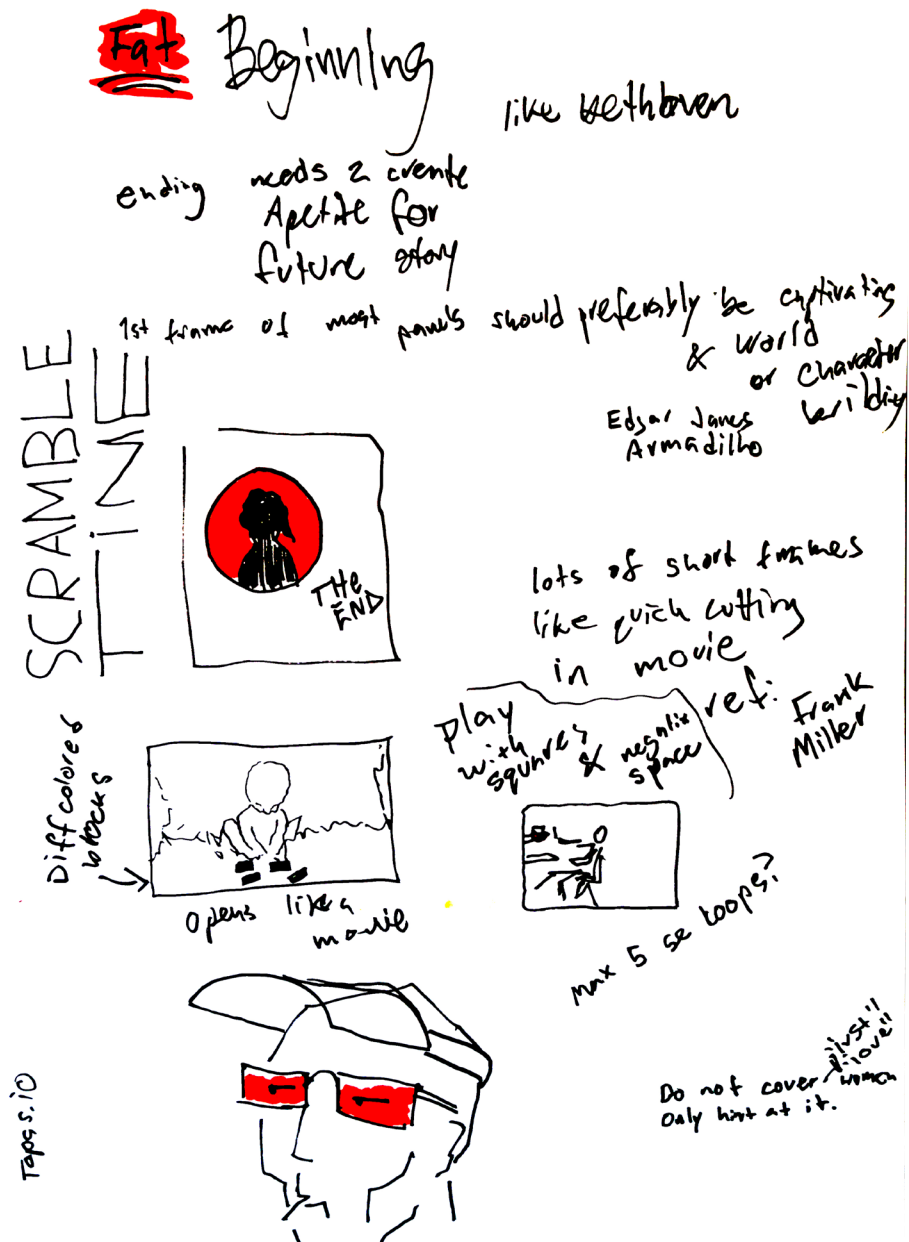 Fat Beginning
like Bethboven
ending needs 2 create
Apetite for
future story
1st frame of most panels should preferably be captivating
& world
or Character
building
Edgar James
Armadilho
SCRAMBLE
TiME
THE
END
lots of short frames
like quick cutting
in movie
ref: Frank
Miller
play
with
squares & negative
space
Diff colored
blocks
Opens like a
movie
max 5 se loops?
Do not cover "lust"
"love"
women
Only hint at it.
Tapas.io